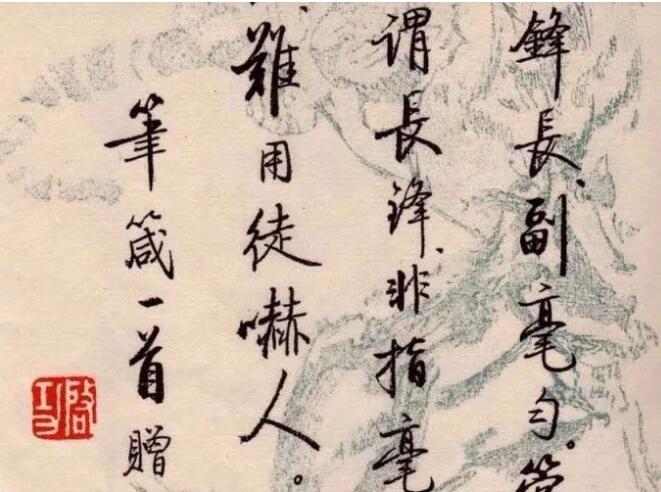 鋒長、副毫勻。管
謂長鋒、非指毫
難用徒嚇人。
筆箴一首贈
啓功